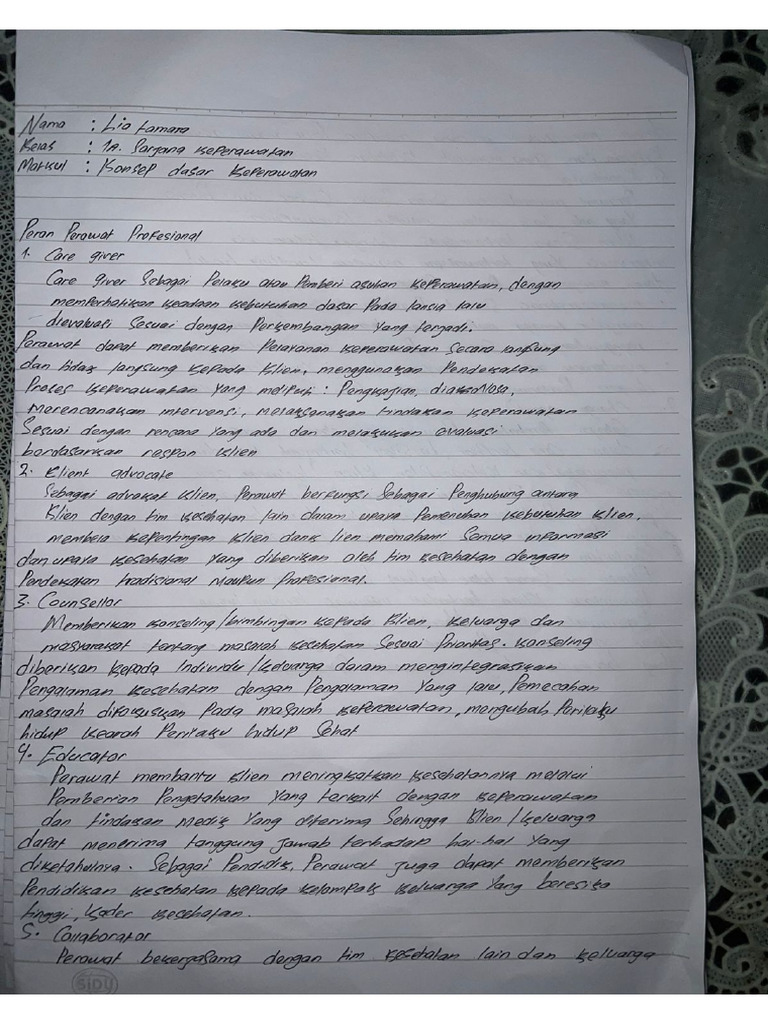 Nama : Lia tamara
Kelas : 1A. Sarjana Keperawatan
Matkul : Konsep dasar Keperawatan
Peran Perawat Profesional
1. Care giver
Care giver Sebagai Pelaku atau Pemberi asuhan keperawatan, dengan
memperhatikan keadaan kebutuhan dasar Pada lansia lalu
dievaluasi Sesuai dengan Perkembangan Yang terjadi.
Perawat dapat memberikan Pelayanan Keperawatan Secara langsung
dan tidak langsung kepada klien, menggunakan Pendekatan
Proses keperawatan yang meliputi : Pengkajian, diagnosa,
merencanakan intervensi, melaksanakan tindakan keperawatan
Sesuai dengan rencana Yang ada dan melakukan evaluasi
berdasarkan respon klien
2. Klient advocate
Sebagai advokat klien, Perawat berfungsi Sebagai Penghubung antara
Klien dengan tim kesehatan lain dalam upaya Pemenuhan kebutuhan klien,
membela kepentingan klien dank lien memahami Semua informasi
dan upaya kesehatan Yang diberikan oleh tim kesehatan dengan
Pendekatan tradisional maupun Profesional.
3. Counsellor
Memberikan konseling/bimbingan kepada klien, keluarga dan
masyarakat tentang masalah kesehatan Sesuai Prioritas. Konseling
diberikan kepada Individu/keluarga dalam mengintegrasikan
Pengalaman kesehatan dengan Pengalaman Yang lalu, Pemecahan
masalah difokuskan Pada masalah keperawatan, mengubah Perilaku
hidup kearah Perilaku hidup Sehat
4. Educator
Perawat membantu klien meningkatkan kesehatannya melalui
Pemberian Pengetahuan Yang terkait dengan keperawatan
dan tindakan medik Yang diterima Sehingga klien/keluarga
dapat menerima tanggung jawab terhadap hal-hal Yang
diketahuinya. Sebagai Pendidik, Perawat juga dapat memberikan
Pendidikan kesehatan kepada kelompok keluarga Yang beresiko
tinggi, kader kesehatan.
5. Collaborator
Perawat bekerjasama dengan tim kesehatan lain dan keluarga
SIDU